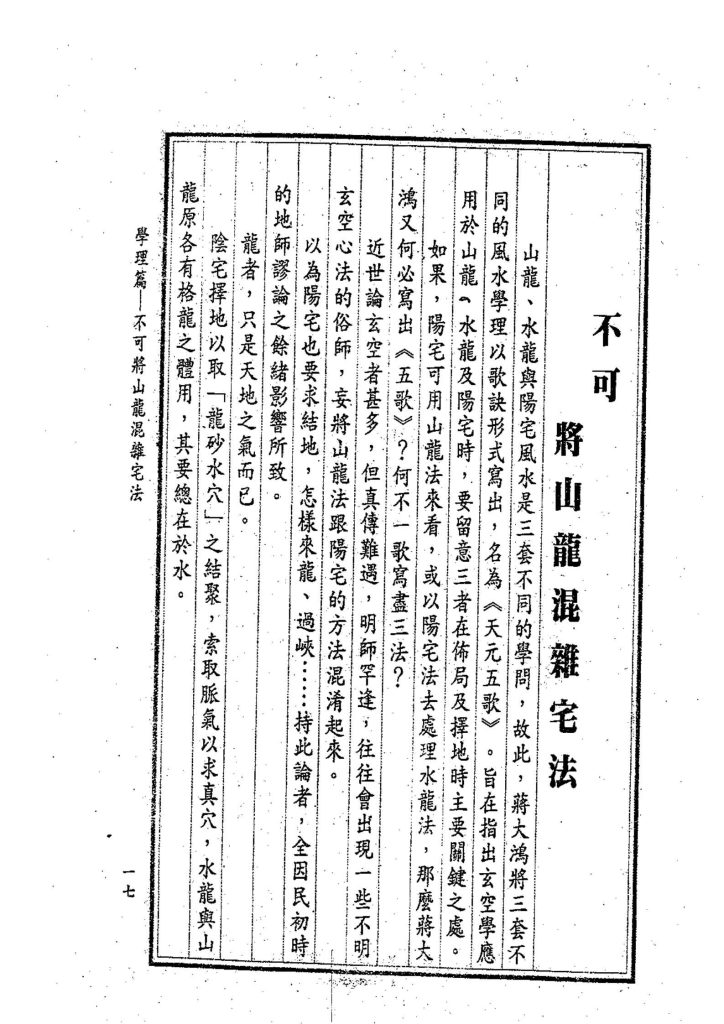 不可將山龍混雜宅法
山龍、水龍與陽宅風水是三套不同的學問，故此，蔣大鴻將三套不
同的風水學理以歌訣形式寫出，名為《天元五歌》。旨在指出玄空學應
用於山龍、水龍及陽宅時，要留意三者在佈局及擇地時主要關鍵之處。
如果，陽宅可用山龍法來看，或以陽宅法去處理水龍法，那麼蔣大
鴻又何必寫出《五歌》？何不一歌寫盡三法？
近世論玄空者甚多，但真傳難遇，明師罕逢，往往會出現一些不明
玄空心法的俗師，妄將山龍法跟陽宅的方法混淆起來。
以為陽宅也要求結地，怎樣來龍、過峽……持此論者，全因民初時
的地師謬論之餘緒影響所致。
龍者，只是天地之氣而已。
陰宅擇地以取「龍砂水穴」之結聚，索取脈氣以求真穴，水龍與山
龍原各有格龍之體用，其要總在於水。
學理篇－不可將山龍混雜宅法
一七